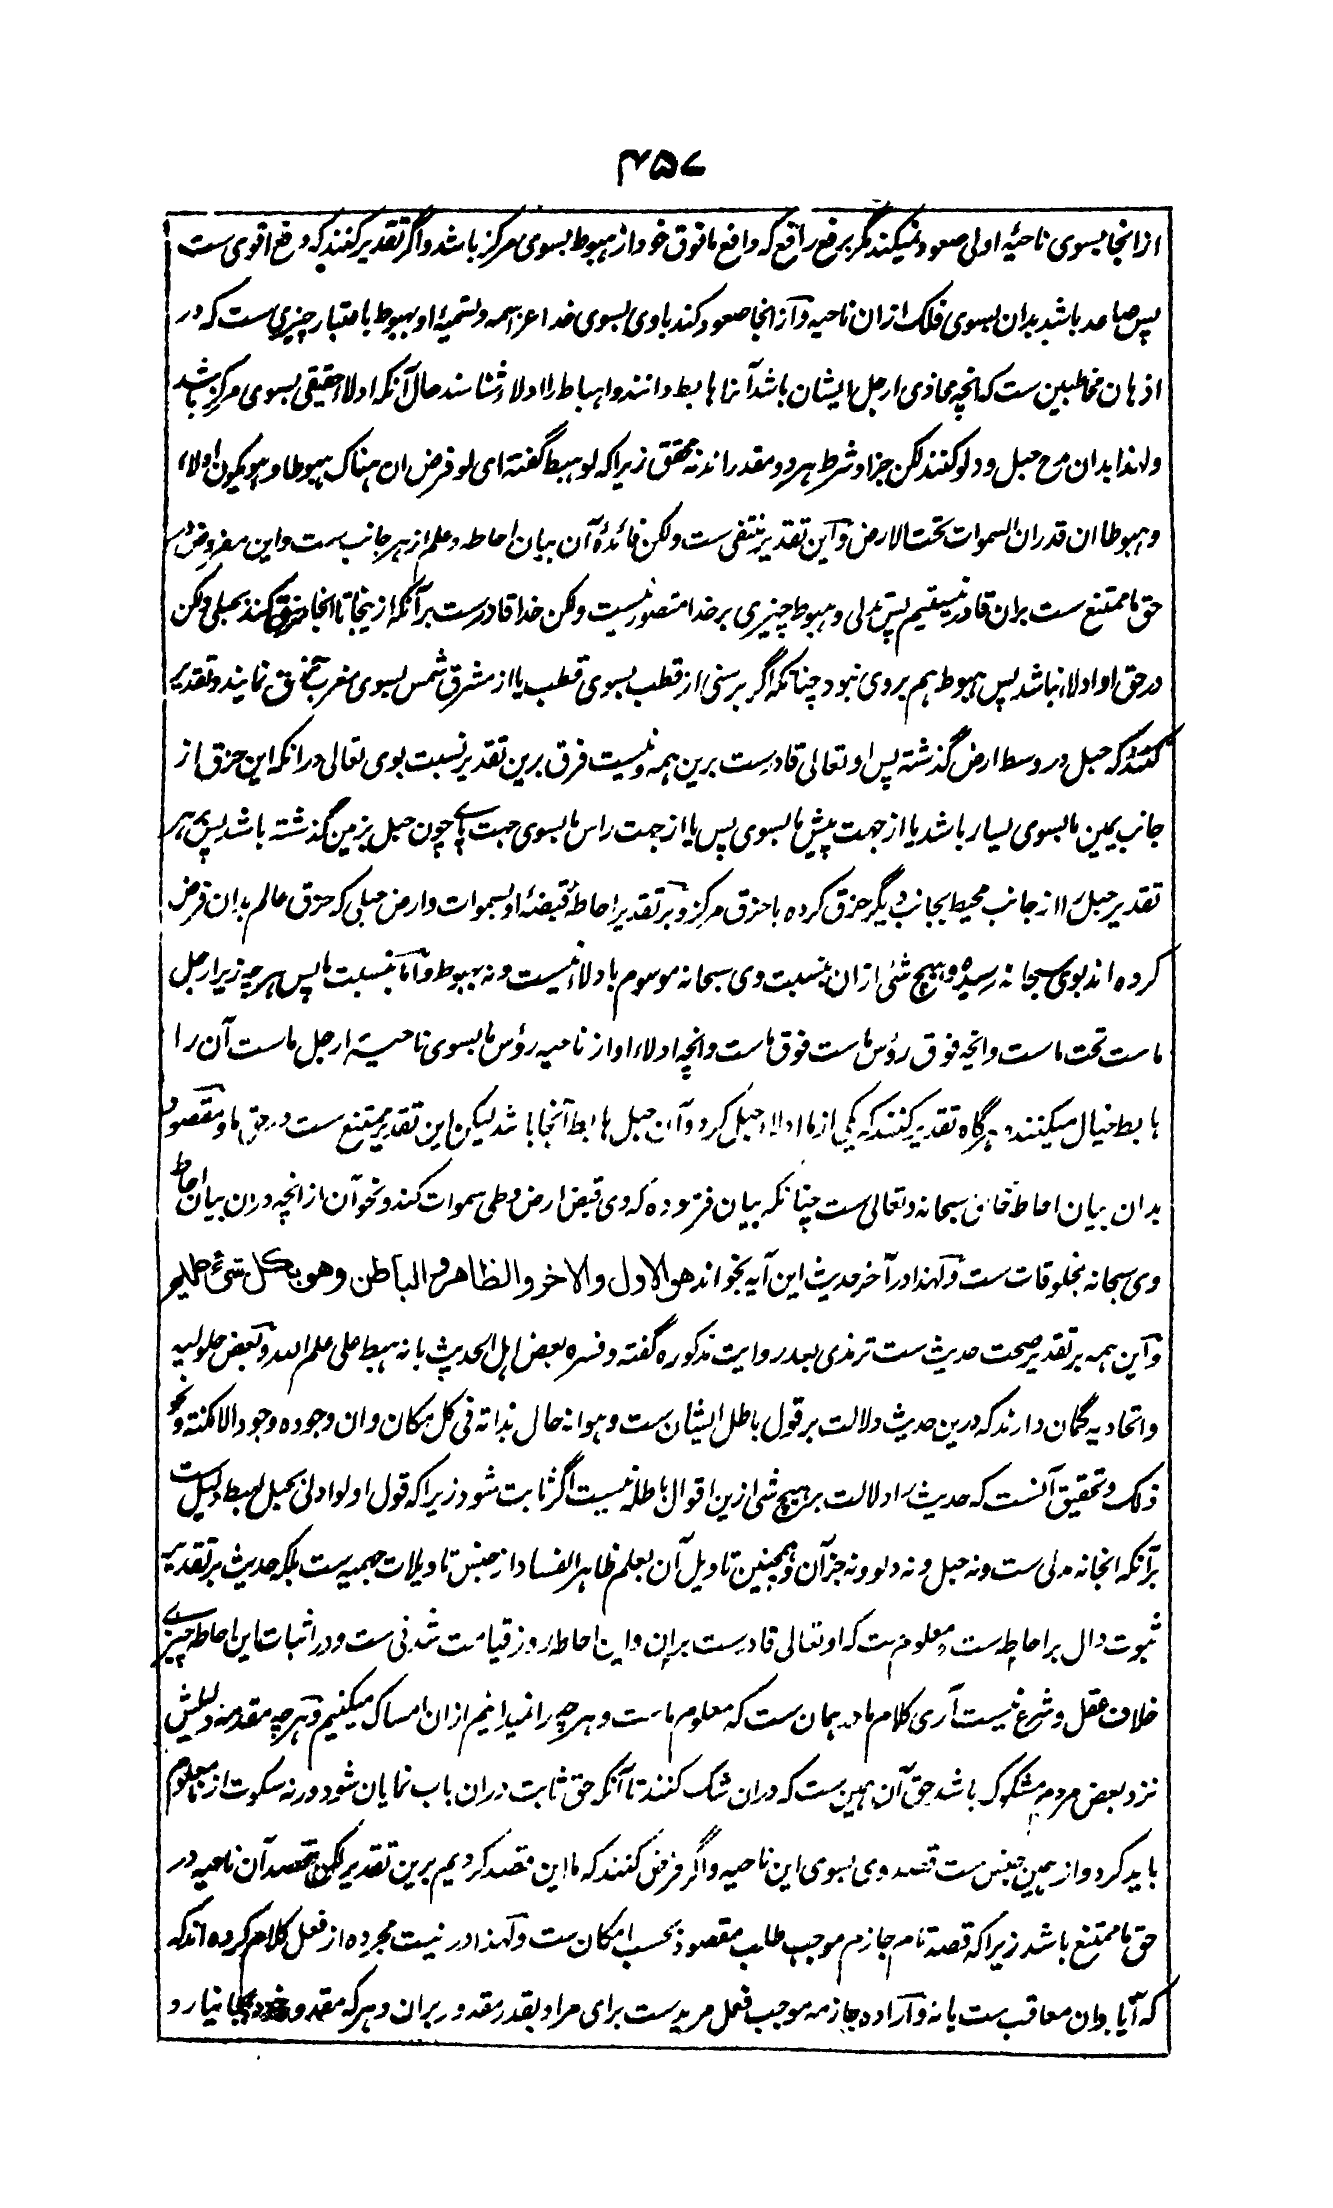 ۴۵۷
ازانجا بسوی ناحیهٔ اولی صعود نمیکند مگر برفع رافع که دافع ما فوق خود از هبوط بسوی مرکز باشد و اگر تقدیر کنند که دفع اقوی ست
پس صاعد باشد بدان بسوی فلک ازان ناحیه و ازانجا صعود کند باوی بسوی خدا عز اسمه و تسمیهٔ او بهبوط باعتبار چیزی ست که در
اذهان مخاطبین ست که انچه محاذی ارجل ایشان باشد آنرا هابط دانند و اهباط را ادلاء شناسند حال آنکه ادلاء حقیقی بسوی مرکز باشد
ولهذا بدان مرح حبل و دلو کنند لکن جزا و شرط هر دو مقدر اند نه محقق زیراکه لو هبط گفته ای لو فرض ان هناک هبوطا و هو یکون ادلاء
و هبوطا ان قدر ان السموات تحت الارض و این تقدیر منتفی ست ولکن فائدهٔ آن بیان احاطه و علم از هر جانب ست و این مفروض در
حق ما ممتنع ست بران قادر نیستیم پس مدلی و هبوط چیزی بر خدا متصور نیست ولکن خدا قادرست برآنکه ازینجا تا انجا خرق کند بحبلی ولکن
در حق او ادلاء نباشد پس هبوط هم بروی نبود چنانکه اگر برسنی از قطب بسوی قطب یا از مشرق شمس بسوی مغرب آن خرق نمایند و تقدیر
کنند که حبل در وسط ارض گذشته پس او تعالی قادرست برین همه و نیست فرق برین تقدیر نسبت بوی تعالی درانکه این خرق از
جانب یمین ما بسوی یسار باشد یا از جهت پیش ما بسوی پس یا از جهت راس ما بسوی جهت پای چون حبل بزمین گذشته باشد پس بر هر
تقدیر حبل را از جانب محیط بجانب دیگر خرق کرده با خرق مرکز و بر تقدیر احاطهٔ قبضهٔ او بسموات و ارض حبلی که خرق عالم بدان فرض
کرده اند بوی سبحانه رسیده و هیچ شئ ازان بنسبت وی سبحانه موسوم بادلاء نیست و نه بهبوط و اما بنسبت ما پس هر چه زیر ارجل
ما ست تحت ماست و انچه فوق رؤس ماست فوق ماست و انچه ادلاء او از ناحیه رؤس ما بسوی ناحیهٔ ارجل ماست آن را
هابط خیال میکنند و هرگاه تقدیر کنند که یکی از ما ادلاء حبل کرد و آن حبل هابط آنجا باشد لیکن این تقدیر ممتنع ست در حق ما و مقصود
بدان بیان احاطهٔ خالق سبحانه و تعالی ست چنانکه بیان فرموده که وی قبض ارض و طی سموات کند و نحو آن ازانچه دران بیان احاطهٔ
وی سبحانه بمخلوقات ست ولهذا در آخر حدیث این آیه بخواند هو الاول والاخر والظاهر والباطن وهو بکل شیء علیم
و این همه بر تقدیر صحت حدیث ست ترمذی بعد روایت مذکوره گفته و فسره بعض اهل الحدیث بانه هبط علی علم الله و بعض حلولیه
و اتحادیه گمان دارند که درین حدیث دلالت بر قول باطل ایشان ست و هو انه حال بذاته فی کل مکان و ان وجوده وجود الامکنة و نحو
ذلک و تحقیق آنست که حدیث را دلالت بر هیچ شئ ازین اقوال باطله نیست اگر ثابت شود زیراکه قول او لو ادلی بحبل لهبط دلیل ست
برآنکه انجا نه مدلی ست و نه حبل و نه دلو و نه جز آن و همچنین تاویل آن بعلم ظاهر الفساد از جنس تاویلات جهمیه ست بلکه حدیث بر تقدیر
ثبوت دال بر احاطه ست و معلوم ست که او تعالی قادرست بران و این احاطه روز قیامت شدنی ست و در اثبات این احاطه چیزی
خلاف عقل و شرع نیست آری کلام ما در همان ست که معلوم ماست و هر چه را نمیدانیم ازان امساک میکنیم و هر چه مقدمه دلیلش
نزد بعض مردم مشکوک باشد حق آن همین ست که دران شک کنند تا آنکه حق ثابت دران باب نمایان شود ورنه سکوت از نامعلوم
باید کرد و از همین جنس ست قصد وی بسوی این ناحیه و اگر فرض کنند که ما این قصد کردیم برین تقدیر لکن قصد آن ناحیه در
حق ما ممتنع باشد زیراکه قصد تام جازم موجب طلب مقصود بحسب امکان ست ولهذا در نیت مجرده از فعل کلام کرده اند که
که آیا بدان معاقب ست یا نه و اراده جازمه موجب فعل مریدست برای مراد بقدر مقدور بران و هر که مقدور خود بجا نیارد